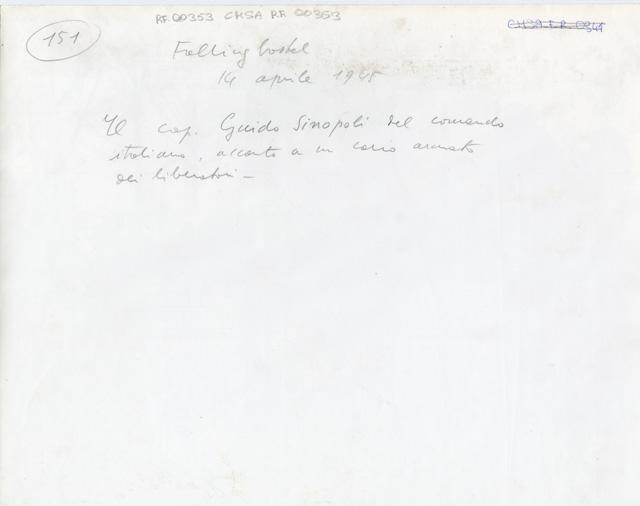 RF. 00353 CMSA RF. 00353
CMSA F.R. 0341
151
Fallingbostel
14 aprile 1945
Il cap. Guido Sinopoli del comando
italiano, accanto a un carro armato
dei liberatori –